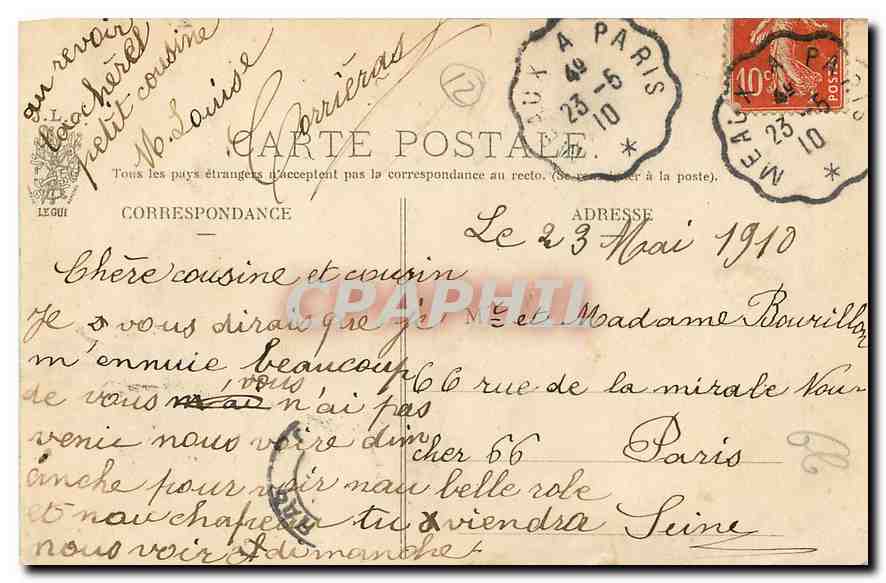 au revoir
petit cousine
M. Louise
Corriéras
12
MEAUX A PARIS
4º
23 - 5
10
*
10c
POSTES
MEAUX A PARIS
4º
23 - 5
10
*
CARTE POSTALE
Tous les pays étrangers n'acceptent pas la correspondance au recto. (Se renseigner à la poste).
E.L.D
LE GUI
CORRESPONDANCE
ADRESSE
Le 23 Mai 1910
Chère cousine et cousin
Je vous dirais que je
m'ennuie beaucoup
de vous vous n'ai pas
venic nous voire dim
anche pour voir nau belle role
et nau chapeau tu viendra
nous voir dimanche
Mr et Madame Bourillon
66 rue de la mirale Nou-
cher 66 Paris
Seine
66
CPAPHIL